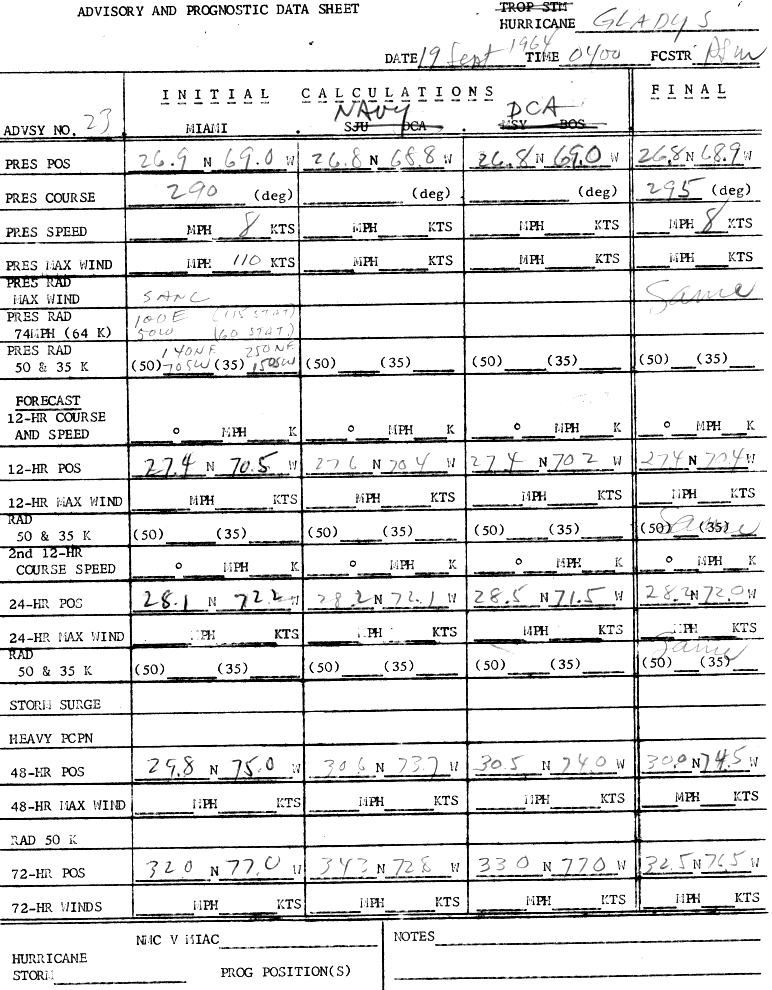 ADVISORY AND PROGNOSTIC DATA SHEET TROP STM
HURRICANE GLADYS
DATE 19 Sept 1964 TIME 0400 FCSTR
INITIAL CALCULATIONS FINAL
NAVY DCA
ADVSY NO. 23 MIAMI SJU DCA MSY BOS
PRES POS 26.9 N 69.0 W 26.8 N 68.8 W 26.8 N 69.0 W 26.8 N 68.9 W
PRES COURSE 290 (deg) (deg) (deg) 295 (deg)
PRES SPEED MPH 8 KTS MPH KTS MPH KTS MPH 8 KTS
PRES MAX WIND MPH 110 KTS MPH KTS MPH KTS MPH KTS
PRES RAD
MAX WIND SANC Same
PRES RAD 100E (115 STAT)
74MPH (64 K) 50W (60 STAT)
PRES RAD 140NE 250NE
50 & 35 K (50) 70SW (35) 150SW (50) (35) (50) (35) (50) (35)
FORECAST
12-HR COURSE
AND SPEED ° MPH K ° MPH K ° MPH K ° MPH K
12-HR POS 27.4 N 70.5 W 27.6 N 70.4 W 27.4 N 70.2 W 27.4 N 70.4 W
12-HR MAX WIND MPH KTS MPH KTS MPH KTS MPH KTS
RAD
50 & 35 K (50) (35) (50) (35) (50) (35) (50) (35) Same
2nd 12-HR
COURSE SPEED ° MPH K ° MPH K ° MPH K ° MPH K
24-HR POS 28.1 N 72.2 W 28.2 N 72.1 W 28.5 N 71.5 W 28.2 N 72.0 W
24-HR MAX WIND MPH KTS MPH KTS MPH KTS MPH KTS
RAD Same
50 & 35 K (50) (35) (50) (35) (50) (35) (50) (35)
STORM SURGE
HEAVY PCPN
48-HR POS 29.8 N 75.0 W 30.6 N 73.7 W 30.5 N 74.0 W 30.0 N 74.5 W
48-HR MAX WIND MPH KTS MPH KTS MPH KTS MPH KTS
RAD 50 K
72-HR POS 32.0 N 77.0 W 34.3 N 72.8 W 33.0 N 77.0 W 32.5 N 76.5 W
72-HR WINDS MPH KTS MPH KTS MPH KTS MPH KTS
NMC V MIAC NOTES
HURRICANE
STORM PROG POSITION(S)